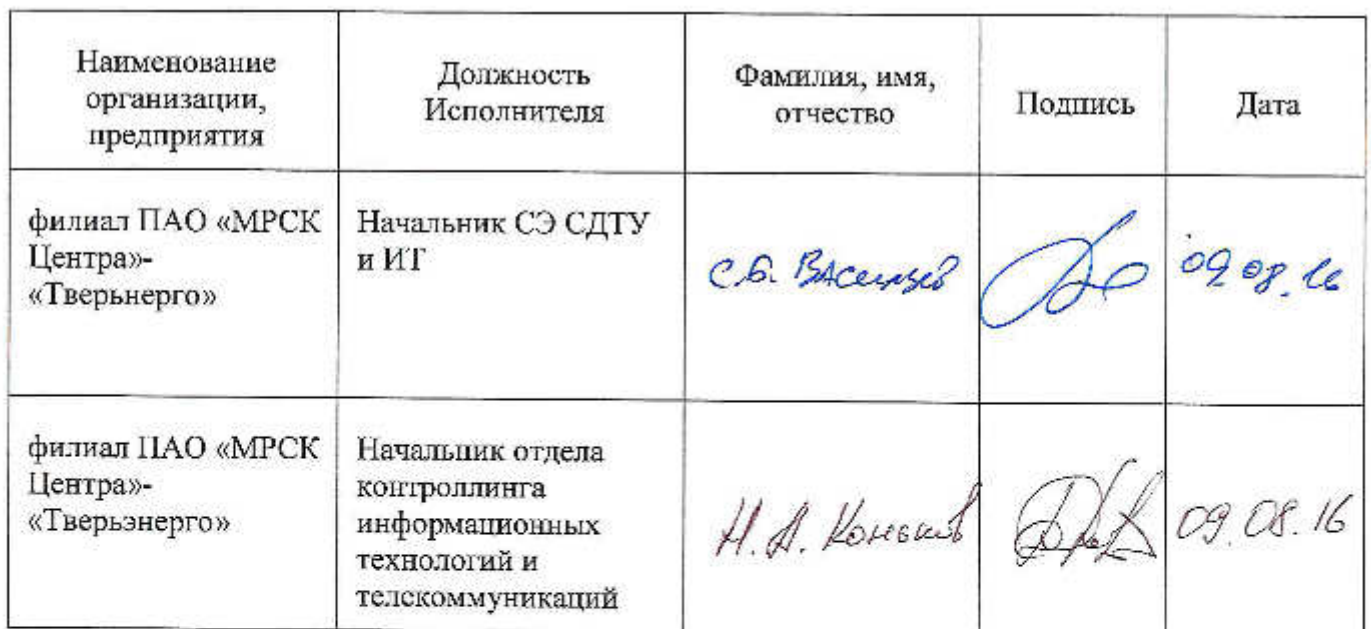 Наименование
организации,
предприятия
Должность
Исполнителя
Фамилия, имя,
отчество
Подпись
Дата
филиал ПАО «МРСК
Центра»-
«Тверьнерго»
Начальник СЭ СДТУ
и ИТ
С.Б.
09.08.16
филиал ПАО «МРСК
Центра»-
«Тверьэнерго»
Начальник отдела
контроллинга
информационных
технологий и
телекоммуникаций
Н.А. Коньков
09.08.16